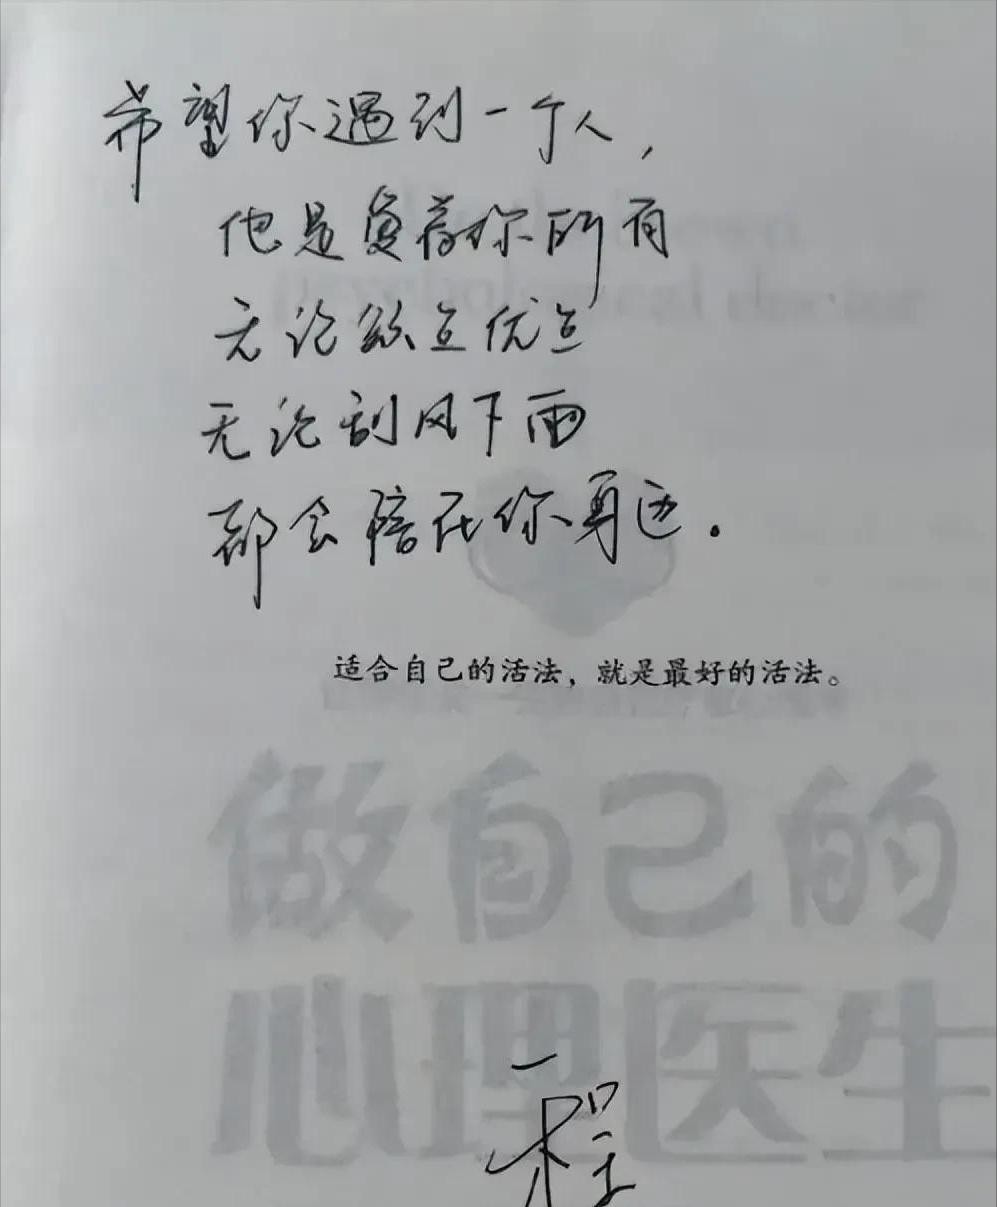 希望你遇到一个人，
他是负荷你所有
无论缺点优点
无论刮风下雨
都会陪在你身边.
适合自己的活法，就是最好的活法。
做自己的
心理医生
一程